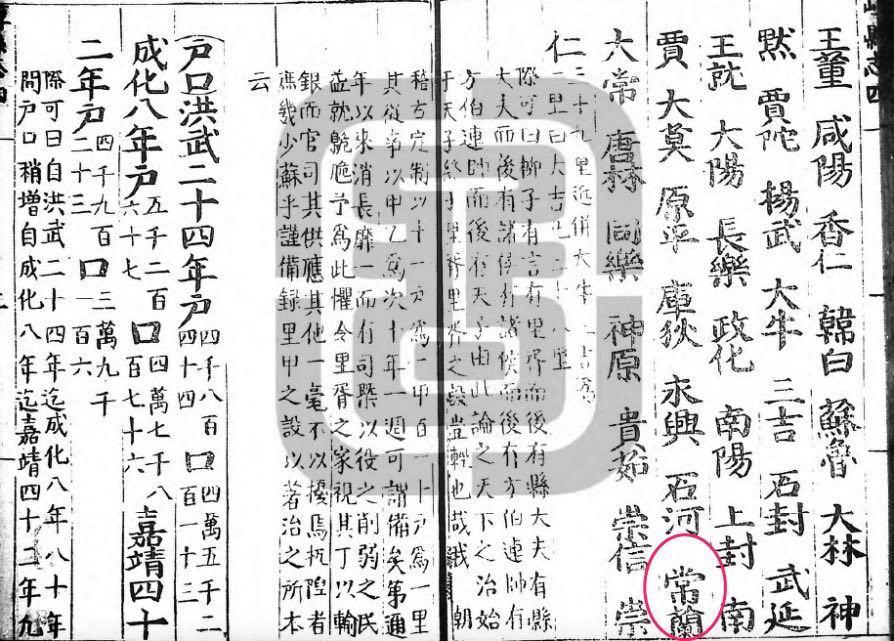 崞縣志四
王董 咸陽 香仁 韓白 蘇魯 大林 神
黙 賈陀 楊武 大牛 三吉 石封 武延
王就 大陽 長樂 政化 南陽 上封 南
賈 大莫 原平 庫狄 永興 石河 常蘭
大常 唐林 同樂 神原 貴茹 崇信 崇
仁
三十九里近併大牛 三吉為
一里曰大吉 三十八里
際可曰柳子有言有里胥而後有縣大夫有縣
大夫而後有諸侯有諸侯而後有方伯連帥有
方伯連帥而後有天子由此論之天下之治始
于天子終于里胥里胥之設豈輕也哉我朝
稽古定制以十一戶為一甲百一十戶為一里
其從事以甲乙為次十年一週可謂備矣第通
年以來消長靡一而有司槩以役之削弱之民
益就 予為此懼令里胥之家視其丁以輸
銀而官司其供應其他一毫不以擾焉 者
庶幾少蘇乎謹備録里甲之設以著治之所本
云
戶口洪武二十四年戶四千八百四十四口四萬五千二百一十三
成化八年戶五千二百六十七口四萬七千八百七十六嘉靖四十
二年戶四千九百二十三口三萬九千一百六
際可曰自洪武二十四年迄成化八年八十年
間戶口稍增自成化八年迄嘉靖四十二年九